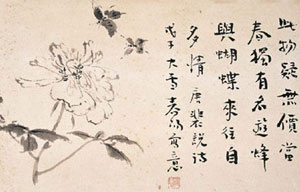 此物疑無價當
春獨有名遊蜂
與蝴蝶來往自
多情唐裴說詩
戊子大雪春寫意